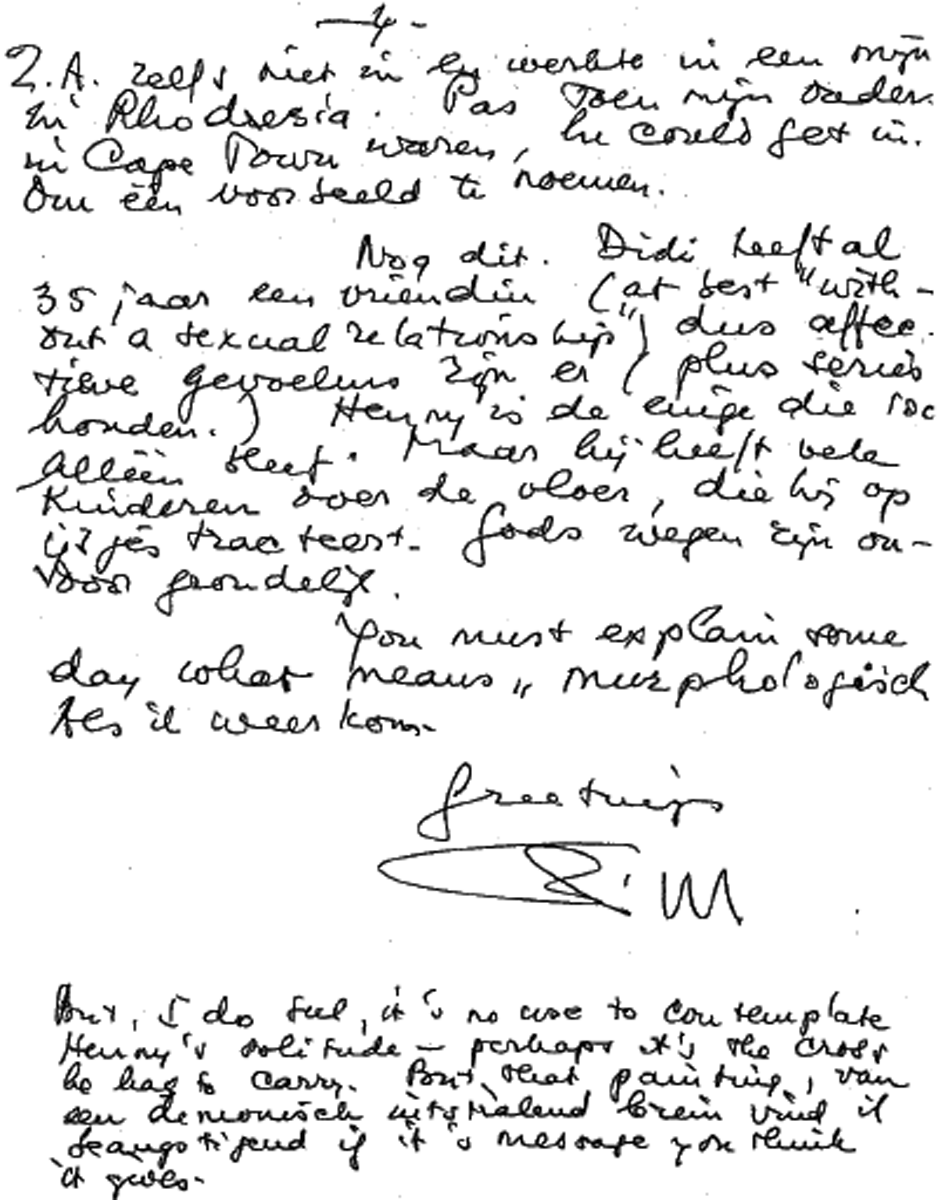 -4-
Z.A. zelfs niet in en werkte in een mijn
in Rhodesia. Pas toen mijn ouders
in Cape Town waren, he could get in.
Om één voorbeeld te noemen.
Nog dit. Didi heeft al
35 jaar een vriendin (at best "with-
out a sexual relationship") dus affec-
tieve gevoelens zijn er (plus series
honden.) Henny is de enige die zo
alléén bleef. Maar hij heeft vele
kinderen over de vloer, die hij op
ijsjes tracteert. Gods wegen zijn on-
doorgrondelijk.
You must explain some
day what means „murphologisch
als ik weer kom.
Greetings
But, I do feel, it's no use to contemplate
Henny's solitude - perhaps it's the cross
he has to carry. But that painting, van
een demonisch uitstralend brein vind ik
beangstigend if it's message you think
it gives.